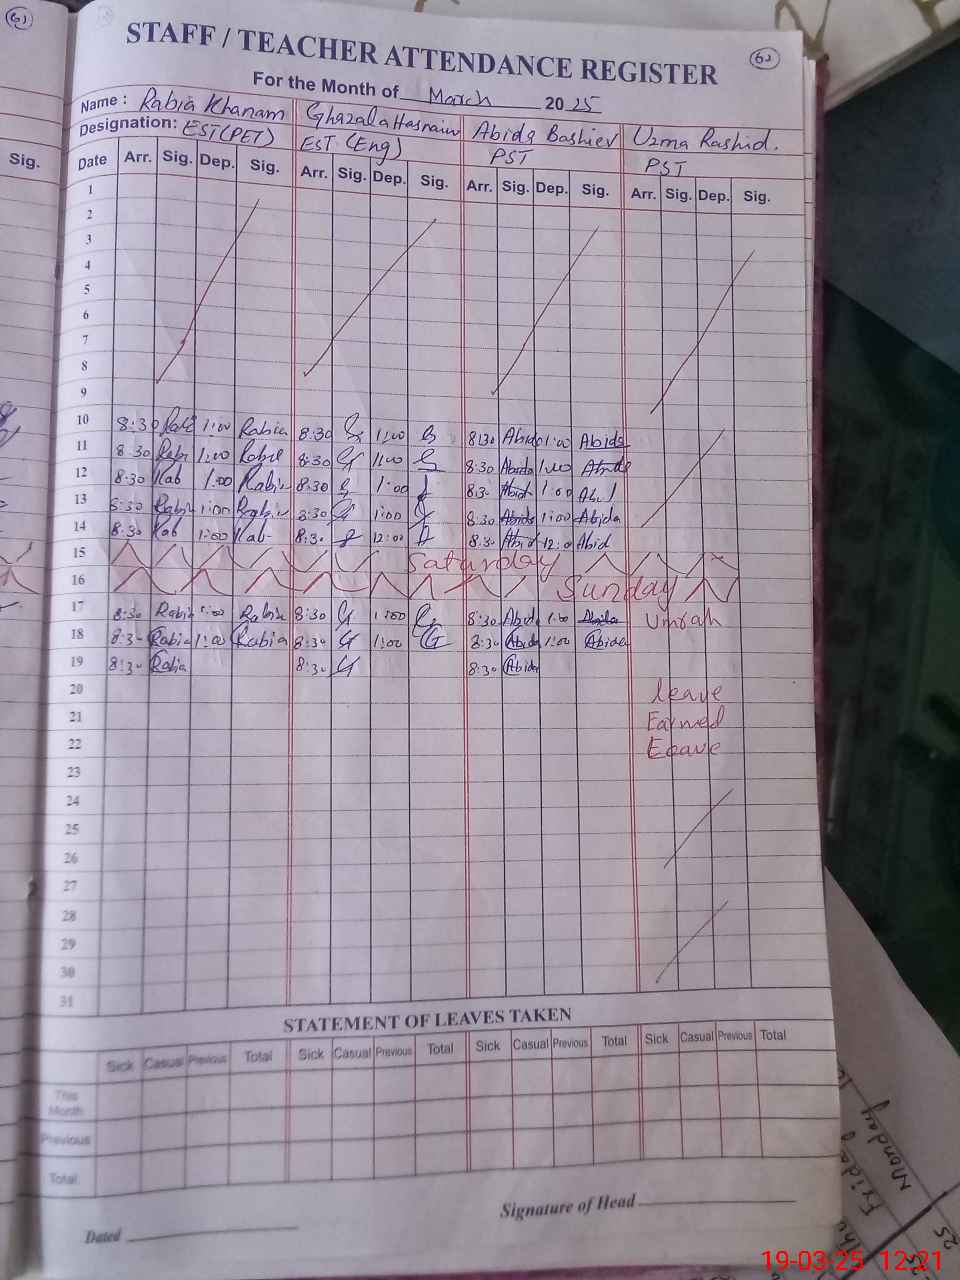 61
62
STAFF / TEACHER ATTENDANCE REGISTER
For the Month of March 2025
Name : Rabia Khanam Ghazala Hasnain Abida Bashier Uzma Rashid.
Designation: EST (PET) EST. (Eng) PST PST
Sig. Date Arr. Sig. Dep. Sig. Arr. Sig. Dep. Sig. Arr. Sig. Dep. Sig. Arr. Sig. Dep. Sig.
1
2
3
4
5
6
7
8
9
10 8:30 1:00 Rabia 8:30 1:00 8:30 Abida 1:00 Abida
11 8:30 Rabi 1:00 8:30 1:00 8:30 Abida 1:00 Abida
12 8:30 Rab 1:00 Rabia 8:30 1:00 8:30 Abid 1:00
13 8:30 Rabia 1:00 8:30 1:00 8:30 Abida 1:00 Abida
14 8:30 Rab 1:00 Rab 8:30 12:00 8:30 Abid 12:00 Abid
15 Saturday
16 Sunday
17 8:30 Rabia 1:00 Rabia 8:30 G 1:00 8:30 Abida 1:00 Abida Umrah
18 8:30 Rabia 1:00 Rabia 8:30 G 1:00 G 8:30 Abida 1:00 Abida
19 8:30 Rabia 8:30 G 8:30 Abida
20 leave
21 Earned
22 Leave
23
24
25
26
27
28
29
30
31
STATEMENT OF LEAVES TAKEN
Sick Casual Previous Total Sick Casual Previous Total Sick Casual Previous Total Sick Casual Previous Total
This Month
Previous
Total
Signature of Head
Dated
Monday
Friday
25
19-03-25 12:21